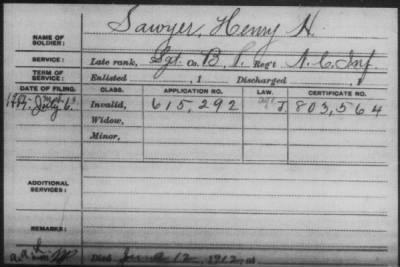 NAME OF SOLDIER: Sawyer, Henry H.
SERVICE: Late rank, Sgt. Co. B, Reg't N.C. Inf.
TERM OF SERVICE: Enlisted , 1 Discharged , 1
DATE OF FILING. CLASS. APPLICATION NO. LAW. CERTIFICATE NO.
July 6. Invalid, 615,292 J 803,564
Widow,
Minor,
ADDITIONAL SERVICES:
REMARKS:
Died June 12, 1912, at